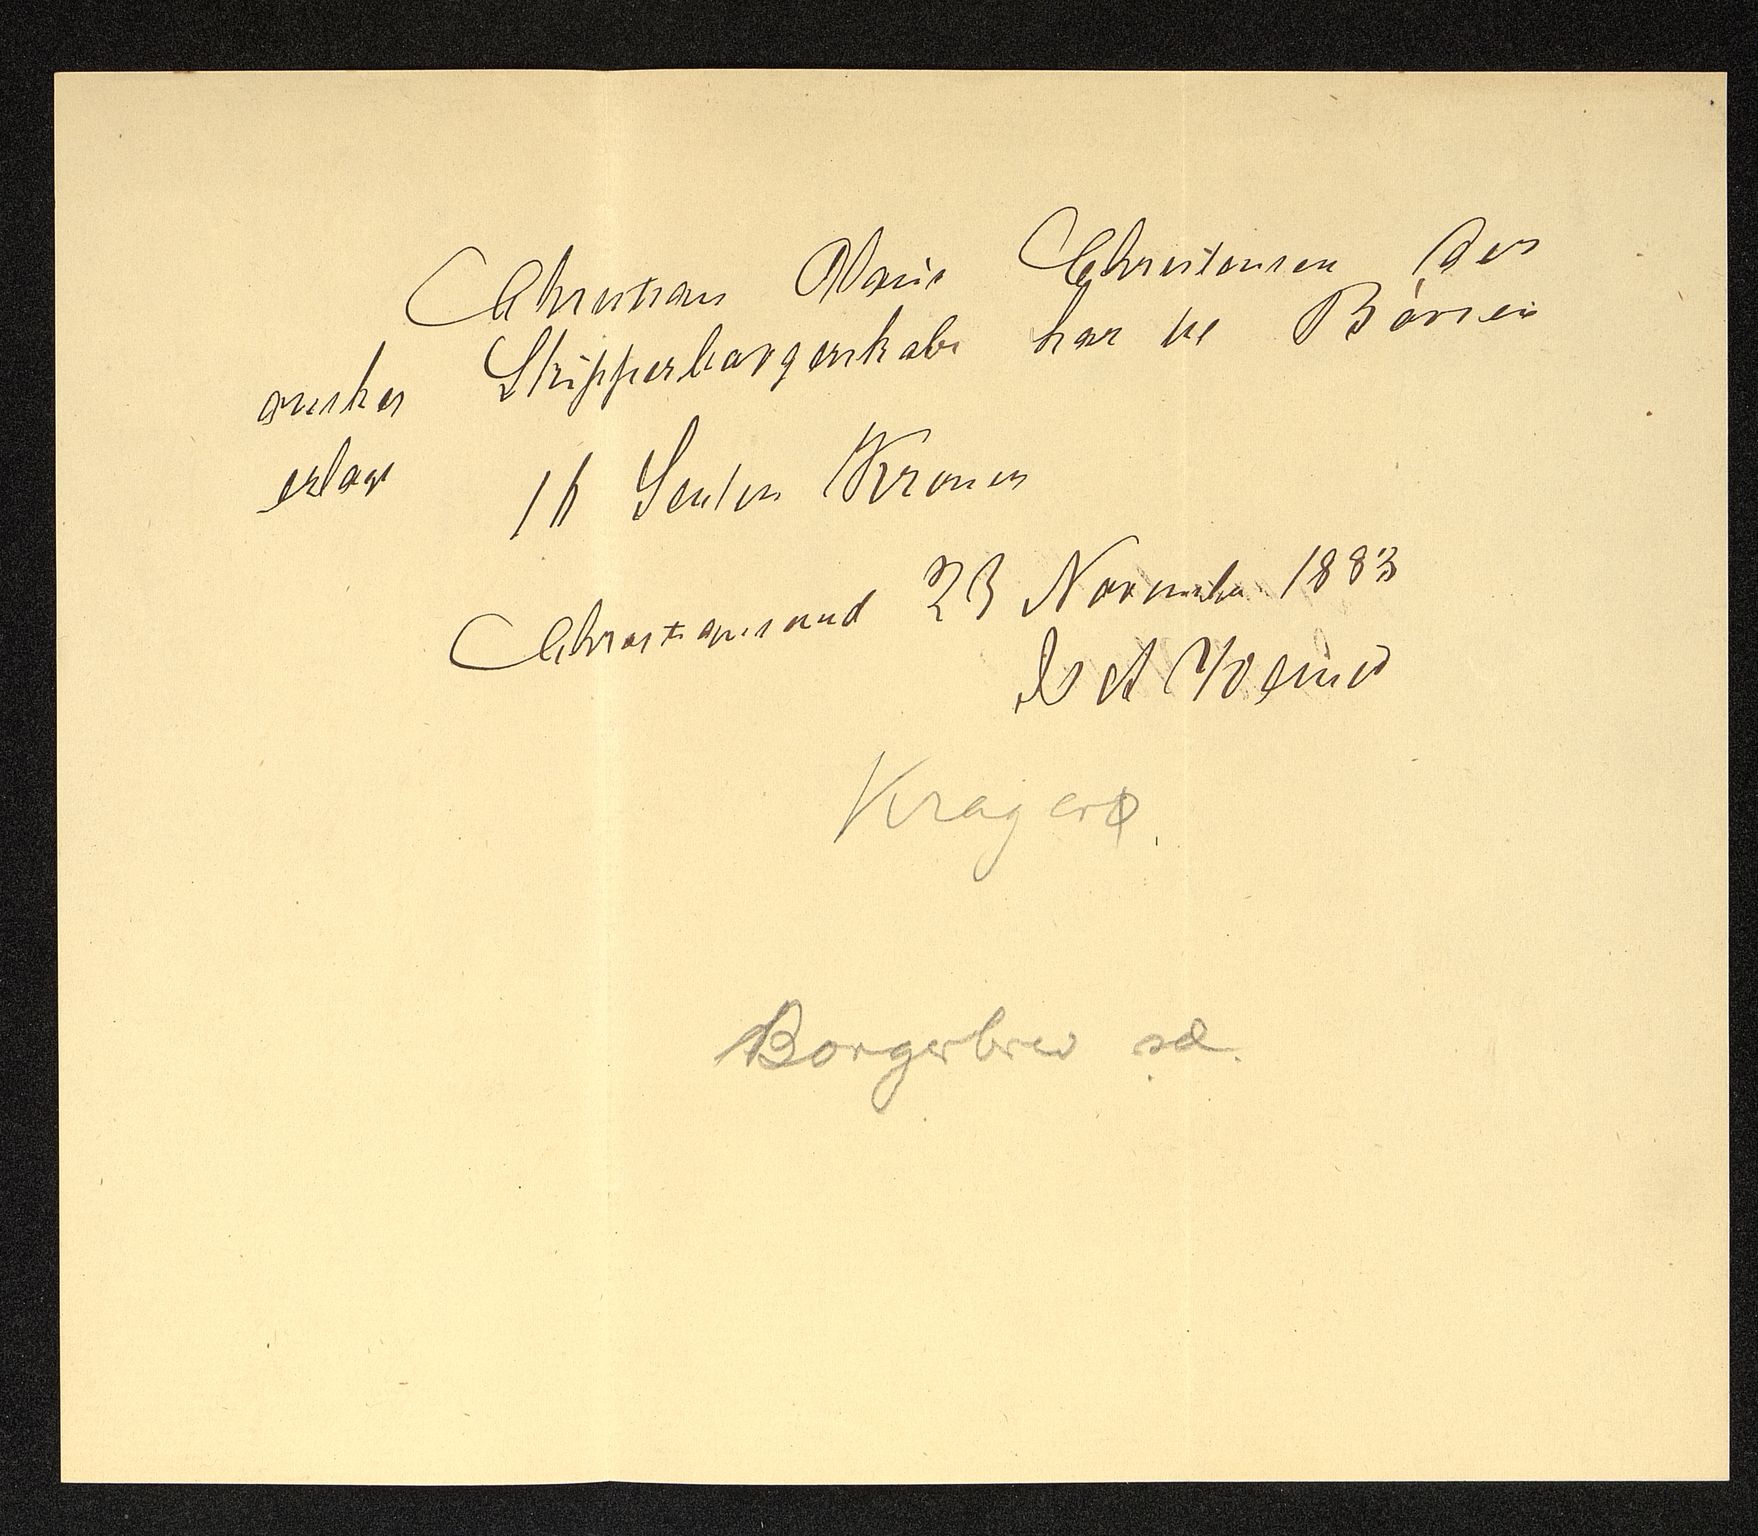 Christian Christensen der
ønsker Skipperborgerskab har til Børsen
erlagt 16 Sexten Kroner
Christianssand 23 November 1883
Kragerø.
Borgerbrev